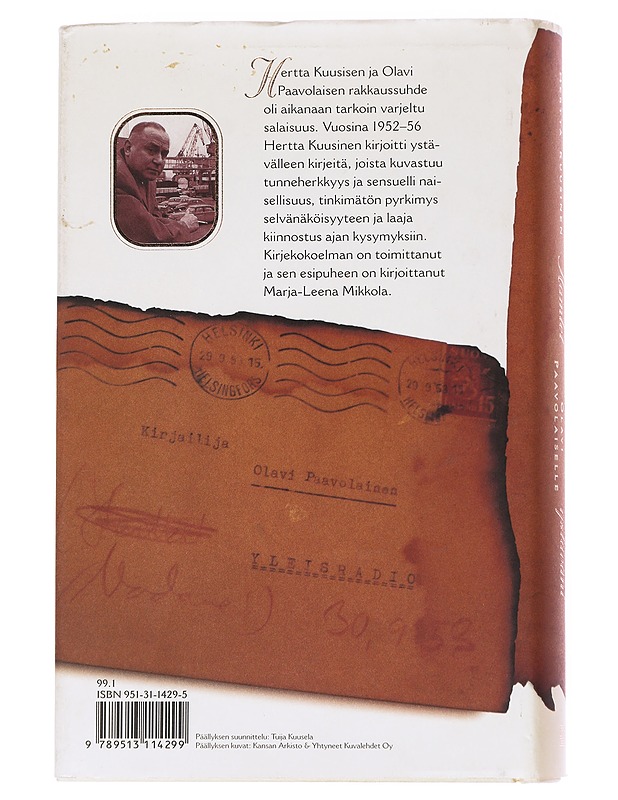 Hertta Kuusisen ja Olavi
Paavolaisen rakkaussuhde
oli aikanaan tarkoin varjeltu
salaisuus. Vuosina 1952–56
Hertta Kuusinen kirjoitti ystä-
välleen kirjeitä, joista kuvastuu
tunneherkkyys ja sensuelli nai-
sellisuus, tinkimätön pyrkimys
selvänäköisyyteen ja laaja
kiinnostus ajan kysymyksiin.
Kirjekokoelman on toimittanut
ja sen esipuheen on kirjoittanut
Marja-Leena Mikkola.
HELSINKI
29 9 53.15
HELSINGFORS
29 9 53.15
Kirjailija
Olavi Paavolainen
YLEISRADIO
30,9 53
99.1
ISBN 951-31-1429-5
9 789513 114299
Päällyksen suunnittelu: Tuija Kuusela
Päällyksen kuvat: Kansan Arkisto & Yhtyneet Kuvalehdet Oy
HERTTA KUUSISEN
OLAVI
PAAVOLAISELLE